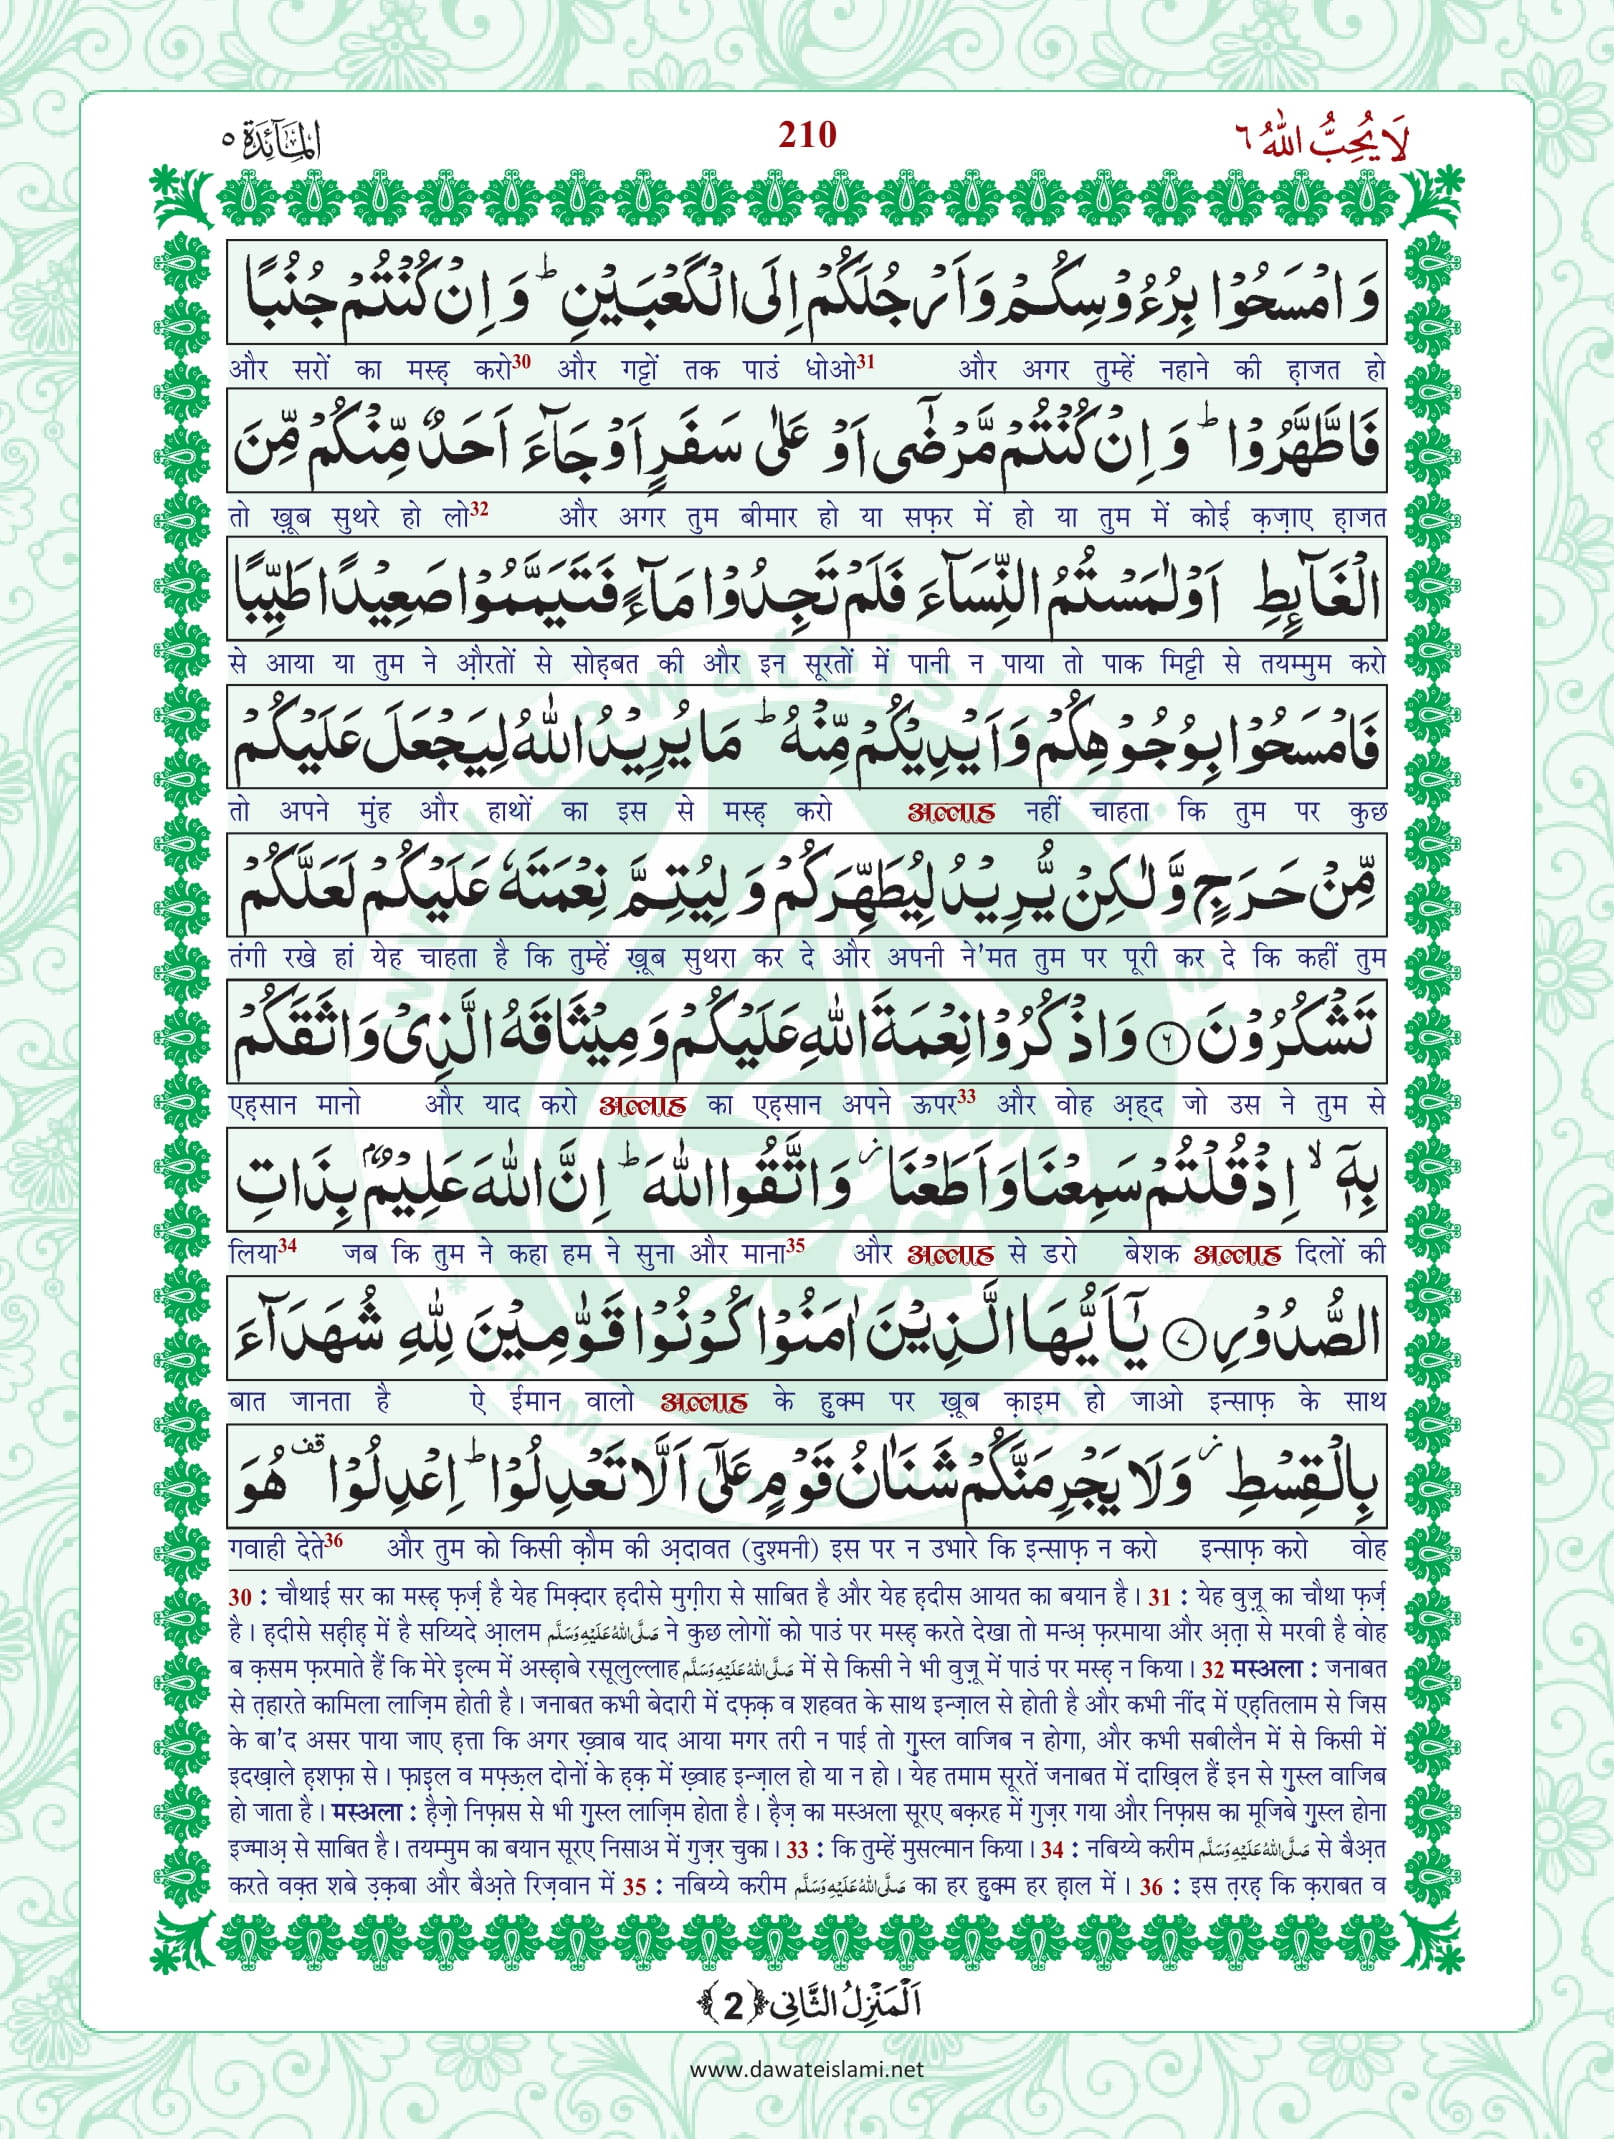 المآئدة ٥
210
لَا یُحِبُّ اللّٰهُ ٦
وَ امْسَحُوْا بِرُءُوْسِكُمْ وَ اَرْجُلَكُمْ اِلَى الْكَعْبَیْنِ ؕ وَ اِنْ كُنْتُمْ جُنُبًا
और सरों का मस्ह़ करो30 और गट्टों तक पाउं धोओ31 और अगर तुम्हें नहाने की ह़ाजत हो
فَاطَّهَّرُوْا ؕ وَ اِنْ كُنْتُمْ مَّرْضٰۤى اَوْ عَلٰى سَفَرٍ اَوْ جَآءَ اَحَدٌ مِّنْكُمْ مِّنَ
तो ख़ूब सुथरे हो लो32 और अगर तुम बीमार हो या सफ़र में हो या तुम में कोई क़ज़ाए ह़ाजत
الْغَآىٕطِ اَوْ لٰمَسْتُمُ النِّسَآءَ فَلَمْ تَجِدُوْا مَآءً فَتَیَمَّمُوْا صَعِیْدًا طَیِّبًا
से आया या तुम ने औ़रतों से सोह़बत की और इन सूरतों में पानी न पाया तो पाक मिट्टी से तयम्मुम करो
فَامْسَحُوْا بِوُجُوْهِكُمْ وَ اَیْدِیْكُمْ مِّنْهُ ؕ مَا یُرِیْدُ اللّٰهُ لِیَجْعَلَ عَلَیْكُمْ
तो अपने मुंह और हाथों का इस से मस्ह़ करो अल्लाह नहीं चाहता कि तुम पर कुछ
مِّنْ حَرَجٍ وَّ لٰكِنْ یُّرِیْدُ لِیُطَهِّرَكُمْ وَ لِیُتِمَّ نِعْمَتَهٗ عَلَیْكُمْ لَعَلَّكُمْ
तंगी रखे हां येह चाहता है कि तुम्हें ख़ूब सुथरा कर दे और अपनी ने'मत तुम पर पूरी कर दे कि कहीं तुम
تَشْكُرُوْنَ ﴿۶﴾ وَ اذْكُرُوْا نِعْمَةَ اللّٰهِ عَلَیْكُمْ وَ مِیْثَاقَهُ الَّذِیْ وَاثَقَكُمْ
एह़सान मानो और याद करो अल्लाह का एह़सान अपने ऊपर33 और वोह अ़ह्द जो उस ने तुम से
بِهٖۤ ۙ اِذْ قُلْتُمْ سَمِعْنَا وَ اَطَعْنَا ٘ وَ اتَّقُوا اللّٰهَ ؕ اِنَّ اللّٰهَ عَلِیْمٌۢ بِذَاتِ
लिया34 जब कि तुम ने कहा हम ने सुना और माना35 और अल्लाह से डरो बेशक अल्लाह दिलों की
الصُّدُوْرِ ﴿۷﴾ یٰۤاَیُّهَا الَّذِیْنَ اٰمَنُوْا كُوْنُوْا قَوّٰمِیْنَ لِلّٰهِ شُهَدَآءَ
बात जानता है ऐ ईमान वालो अल्लाह के हुक्म पर ख़ूब क़ाइम हो जाओ इन्साफ़ के साथ
بِالْقِسْطِ ٘ وَ لَا یَجْرِمَنَّكُمْ شَنَاٰنُ قَوْمٍ عَلٰۤى اَلَّا تَعْدِلُوْا ؕ اِعْدِلُوْا ۫ هُوَ
गवाही देते36 और तुम को किसी क़ौम की अ़दावत (दुश्मनी) इस पर न उभारे कि इन्साफ़ न करो इन्साफ़ करो वोह
30 : चौथाई सर का मस्ह़ फ़र्ज़ है येह मिक़्दार ह़दीसे मुग़ीरा से साबित है और येह ह़दीस आयत का बयान है। 31 : येह वुज़ू का चौथा फ़र्ज़
है। ह़दीसे सह़ीह़ में है सय्यिदे आ़लम صَلَّى اللّٰهُ عَلَیْهِ وَسَلَّم ने कुछ लोगों को पाउं पर मस्ह़ करते देखा तो मन्अ़ फ़रमाया और अ़त़ा से मरवी है वोह
ब क़सम फ़रमाते हैं कि मेरे इ़ल्म में अस्ह़ाबे रसूलुल्लाह صَلَّى اللّٰهُ عَلَیْهِ وَسَلَّم में से किसी ने भी वुज़ू में पाउं पर मस्ह़ न किया। 32 मस्अला : जनाबत
से त़हारते कामिला लाज़िम होती है। जनाबत कभी बेदारी में दफ़्क़ व शहवत के साथ इन्ज़ाल से होती है और कभी नींद में एह़तिलाम से जिस
के बा'द असर पाया जाए ह़त्ता कि अगर ख़्वाब याद आया मगर तरी न पाई तो ग़ुस्ल वाजिब न होगा, और कभी सबीलैन में से किसी में
इदख़ाले ह़शफ़ा से। फ़ाइ़ल व मफ़्ऊ़ल दोनों के ह़क़ में ख़्वाह इन्ज़ाल हो या न हो। येह तमाम सूरतें जनाबत में दाख़िल हैं इन से ग़ुस्ल वाजिब
हो जाता है। मस्अला : ह़ैज़ो निफ़ास से भी ग़ुस्ल लाज़िम होता है। ह़ैज़ का मस्अला सूरए बक़रह में गुज़र गया और निफ़ास का मूजिबे ग़ुस्ल होना
इज्माअ़ से साबित है। तयम्मुम का बयान सूरए निसाअ में गुज़र चुका। 33 : कि तुम्हें मुसल्मान किया। 34 : नबिय्ये करीम صَلَّى اللّٰهُ عَلَیْهِ وَسَلَّم से बैअ़त
करते वक़्त शबे उ़क़बा और बैअ़ते रिज़वान में 35 : नबिय्ये करीम صَلَّى اللّٰهُ عَلَیْهِ وَسَلَّم का हर हुक्म हर ह़ाल में। 36 : इस त़रह़ कि क़राबत व
اَلْمَنْزِلُ الثَّانِی ﴿2﴾
www.dawateislami.net